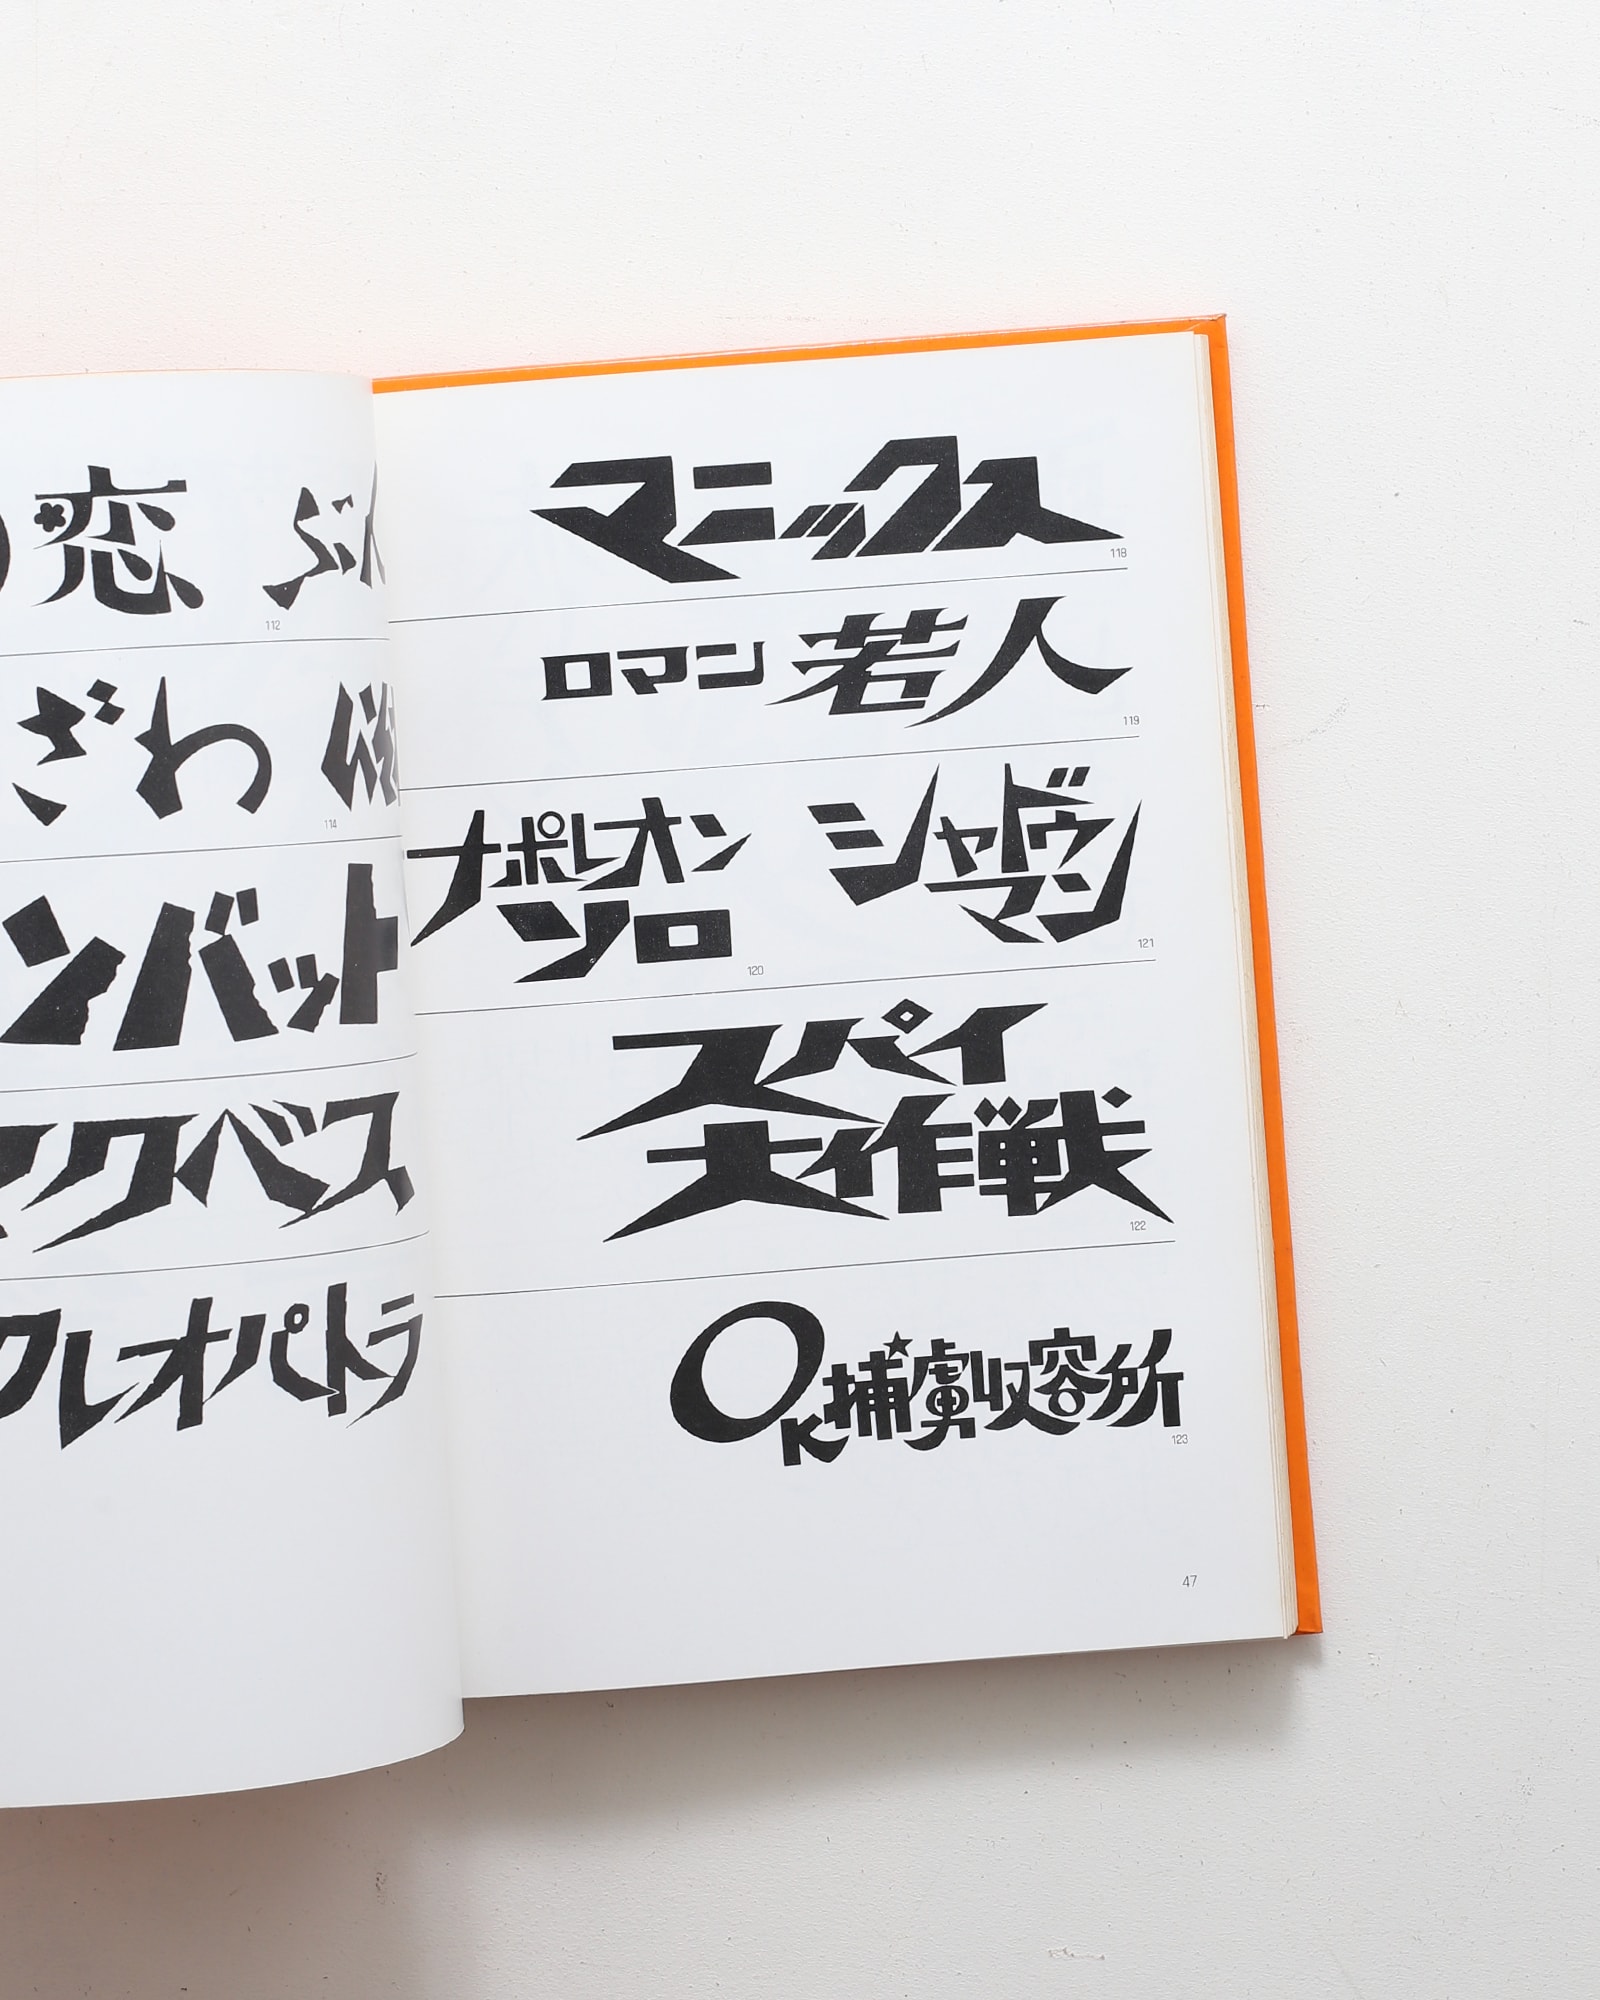 の恋
112
ざわ
114
ンバット
マクベス
クレオパトラ
マニックス
118
ロマン 若人
119
ナポレオン
ソロ
120
シャドウ
マン
121
スパイ
大作戦
122
OK捕虜収容所
123
47